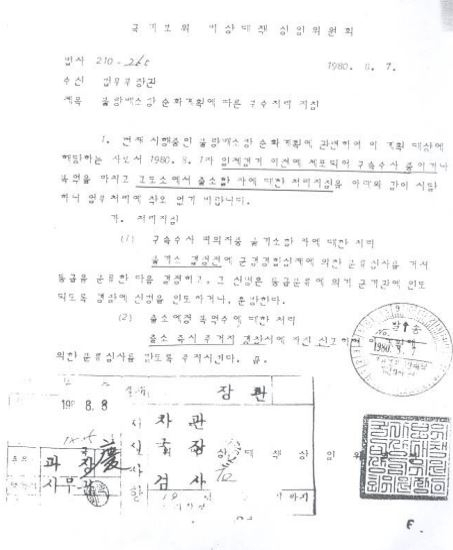 국가보위 비상대책 상임위원회
법사 210-260 1980. 8. 7.
수신 법무부장관
제목 불량배소탕 순화계획에 따른 구속처리 지침
1. 현재 시행중인 불량배소탕 순화계획에 관련하여 이 계획 대상에
해당하는 자로서 1980. 8. 1자 일제검거 이전에 체포되어 구속수사 중이거나
복역을 마치고 교도소에서 출소할 자에 대한 처리지침을 아래와 같이 시달
하니 업무처리에 착오 없기 바랍니다.
가. 처리지침
(1) 구속수사 피의자중 불기소할 자에 대한 처리
불기소 결정전에 군경검합심제에 의한 분류심사를 거쳐
등급을 분류한 다음 결정하고, 그 신병은 등급분류에 의거 군기관에 인도
되도록 경찰에 신병을 인도하거나, 훈방한다.
(2) 출소예정 복역수에 대한 처리
출소 즉시 주거지 경찰서에 자진 신고하여
의한 분류심사를 받도록 주지시킨다. 끝.
발송
No.
1980. 8. 7
8. 8
장관
차관
국장
과장
검사
상 대 책 상 임 위 원